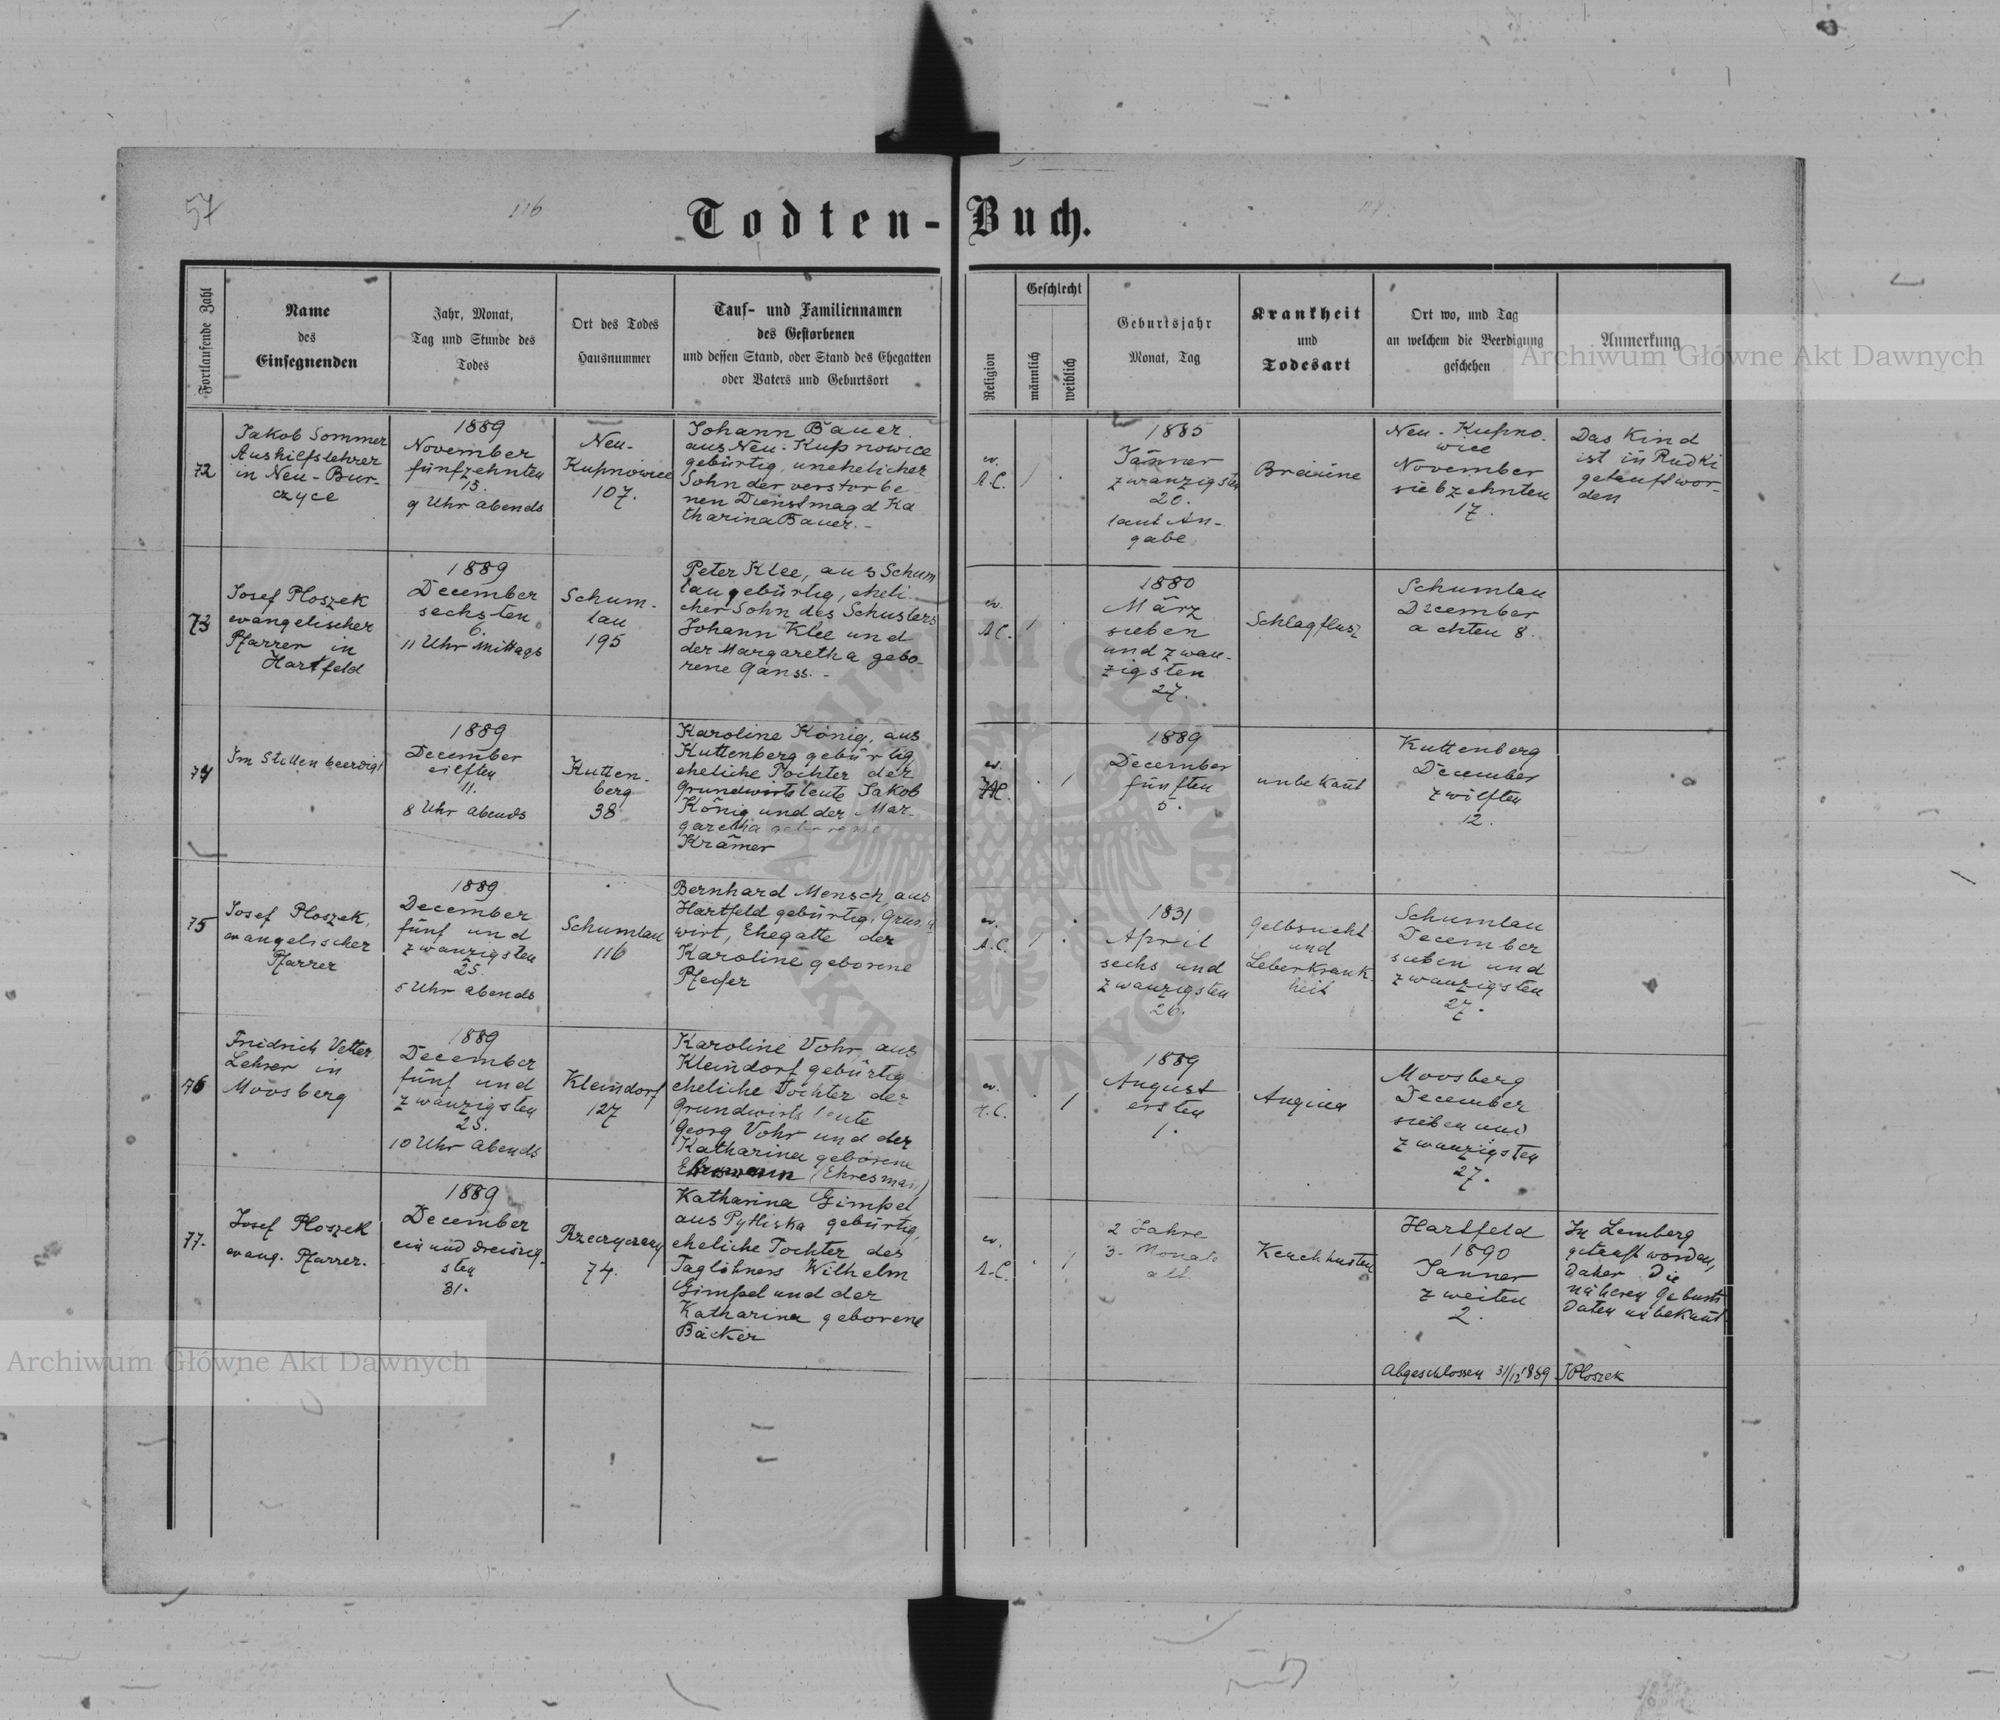 57
116
117
Todten-Buch.
Fortlaufende Zahl
Name
des
Einsegnenden
Jahr, Monat,
Tag und Stunde des
Todes
Ort des Todes
Hausnummer
Tauf- und Familiennamen
des Gestorbenen
und dessen Stand, oder Stand des Ehegatten
oder Vaters und Geburtsort
Religion
Geschlecht
männlich
weiblich
Geburtsjahr
Monat, Tag
Krankheit
und
Todesart
Ort wo, und Tag
an welchem die Beerdigung
geschehen
Anmerkung
Archiwum Główne Akt Dawnych
72
Jakob Sommer
Aushilfslehrer
in Neu-Bur-
czyce
1889
November
fünfzehnten
15.
9 Uhr abends
Neu-
Kupnowice
107.
Johann Bauer
aus Neu-Kupnowice
gebürtig, unehelicher
Sohn der verstorbe
nen Dienstmagd Ka
tharina Bauer.-
ev.
A.C.
1
1885
Jänner
zwanzigsten
20.
laut An-
gabe
Breiüne
Neu-Kupno-
wice
November
siebzehnten
17.
Das Kind
ist in Rudki
getauft wor-
den
73
Josef Ploszek
evangelischer
Pfarrer in
Hartfeld
1889
December
sechsten
6.
11 Uhr Mittags
Schum-
lau
195
Peter Klee, aus Schum
lau gebürtig, eheli-
cher Sohn des Schusters
Johann Klee und
der Margaretha gebo-
rene Ganss.-
ev.
A.C.
1
1880
März
sieben
und zwan-
zigsten
27.
Schlagflusz
Schumlau
December
achten 8.
74
Im Stillen beerdigt
1889
December
eilften
11.
8 Uhr abends
Kutten-
berg
38
Karoline König, aus
Kuttenberg gebürtig
eheliche Tochter der
Grundwirtsleute Jakob
König und der Mar-
garetha geborene
Krämer
ev.
A.C.
1
1889
December
fünften
5.
unbekant
Kuttenberg
December
zwölften
12.
75
Josef Ploszek,
evangelischer
Pfarrer
1889
December
fünf und
zwanzigsten
25
5 Uhr abends
Schumlau
116
Bernhard Mensch, aus
Hartfeld gebürtig, Grund
wirt, Ehegatte der
Karoline geborene
Pfeifer
ev.
A.C.
1
1831
April
sechs und
zwanzigsten
26.
Gelbsucht
und
Leberkrank-
heit
Schumlau
December
sieben und
zwanzigsten
27.
76
Fridrich Vetter
Lehrer in
Moosberg
1889
December
fünf und
zwanzigsten
25.
10 Uhr abends
Kleindorf
127
Karoline Vohr, aus
Kleindorf gebürtig
eheliche Tochter der
Grundwirtsleute
Georg Vohr und der
Katharina geborene
(Ehresman)
ev.
A.C.
1
1889
August
ersten
1.
Angina
Moosberg
December
sieben und
zwanzigsten
27.
77.
Josef Ploszek
evang. Pfarrer.
1889
December
ein und dreiszig-
sten
31.
Rzeczyczany
74.
Katharina Gimpel
aus Pytliska gebürtig,
eheliche Tochter des
Taglöhners Wilhelm
Gimpel und der
Katharina geborene
Bäcker
ev.
A.C.
1
2 Jahre
3. Monate
alt.
Keuchhusten
Hartfeld
1890
Janner
zweiten
2.
In Lemberg
getauft worden,
daher die
näheren Geburts
daten unbekant
Abgeschlossen 31/12 1889 JPloszek
Archiwum Główne Akt Dawnych
ARCHIWUM GŁÓWNE AKT DAWNYCH